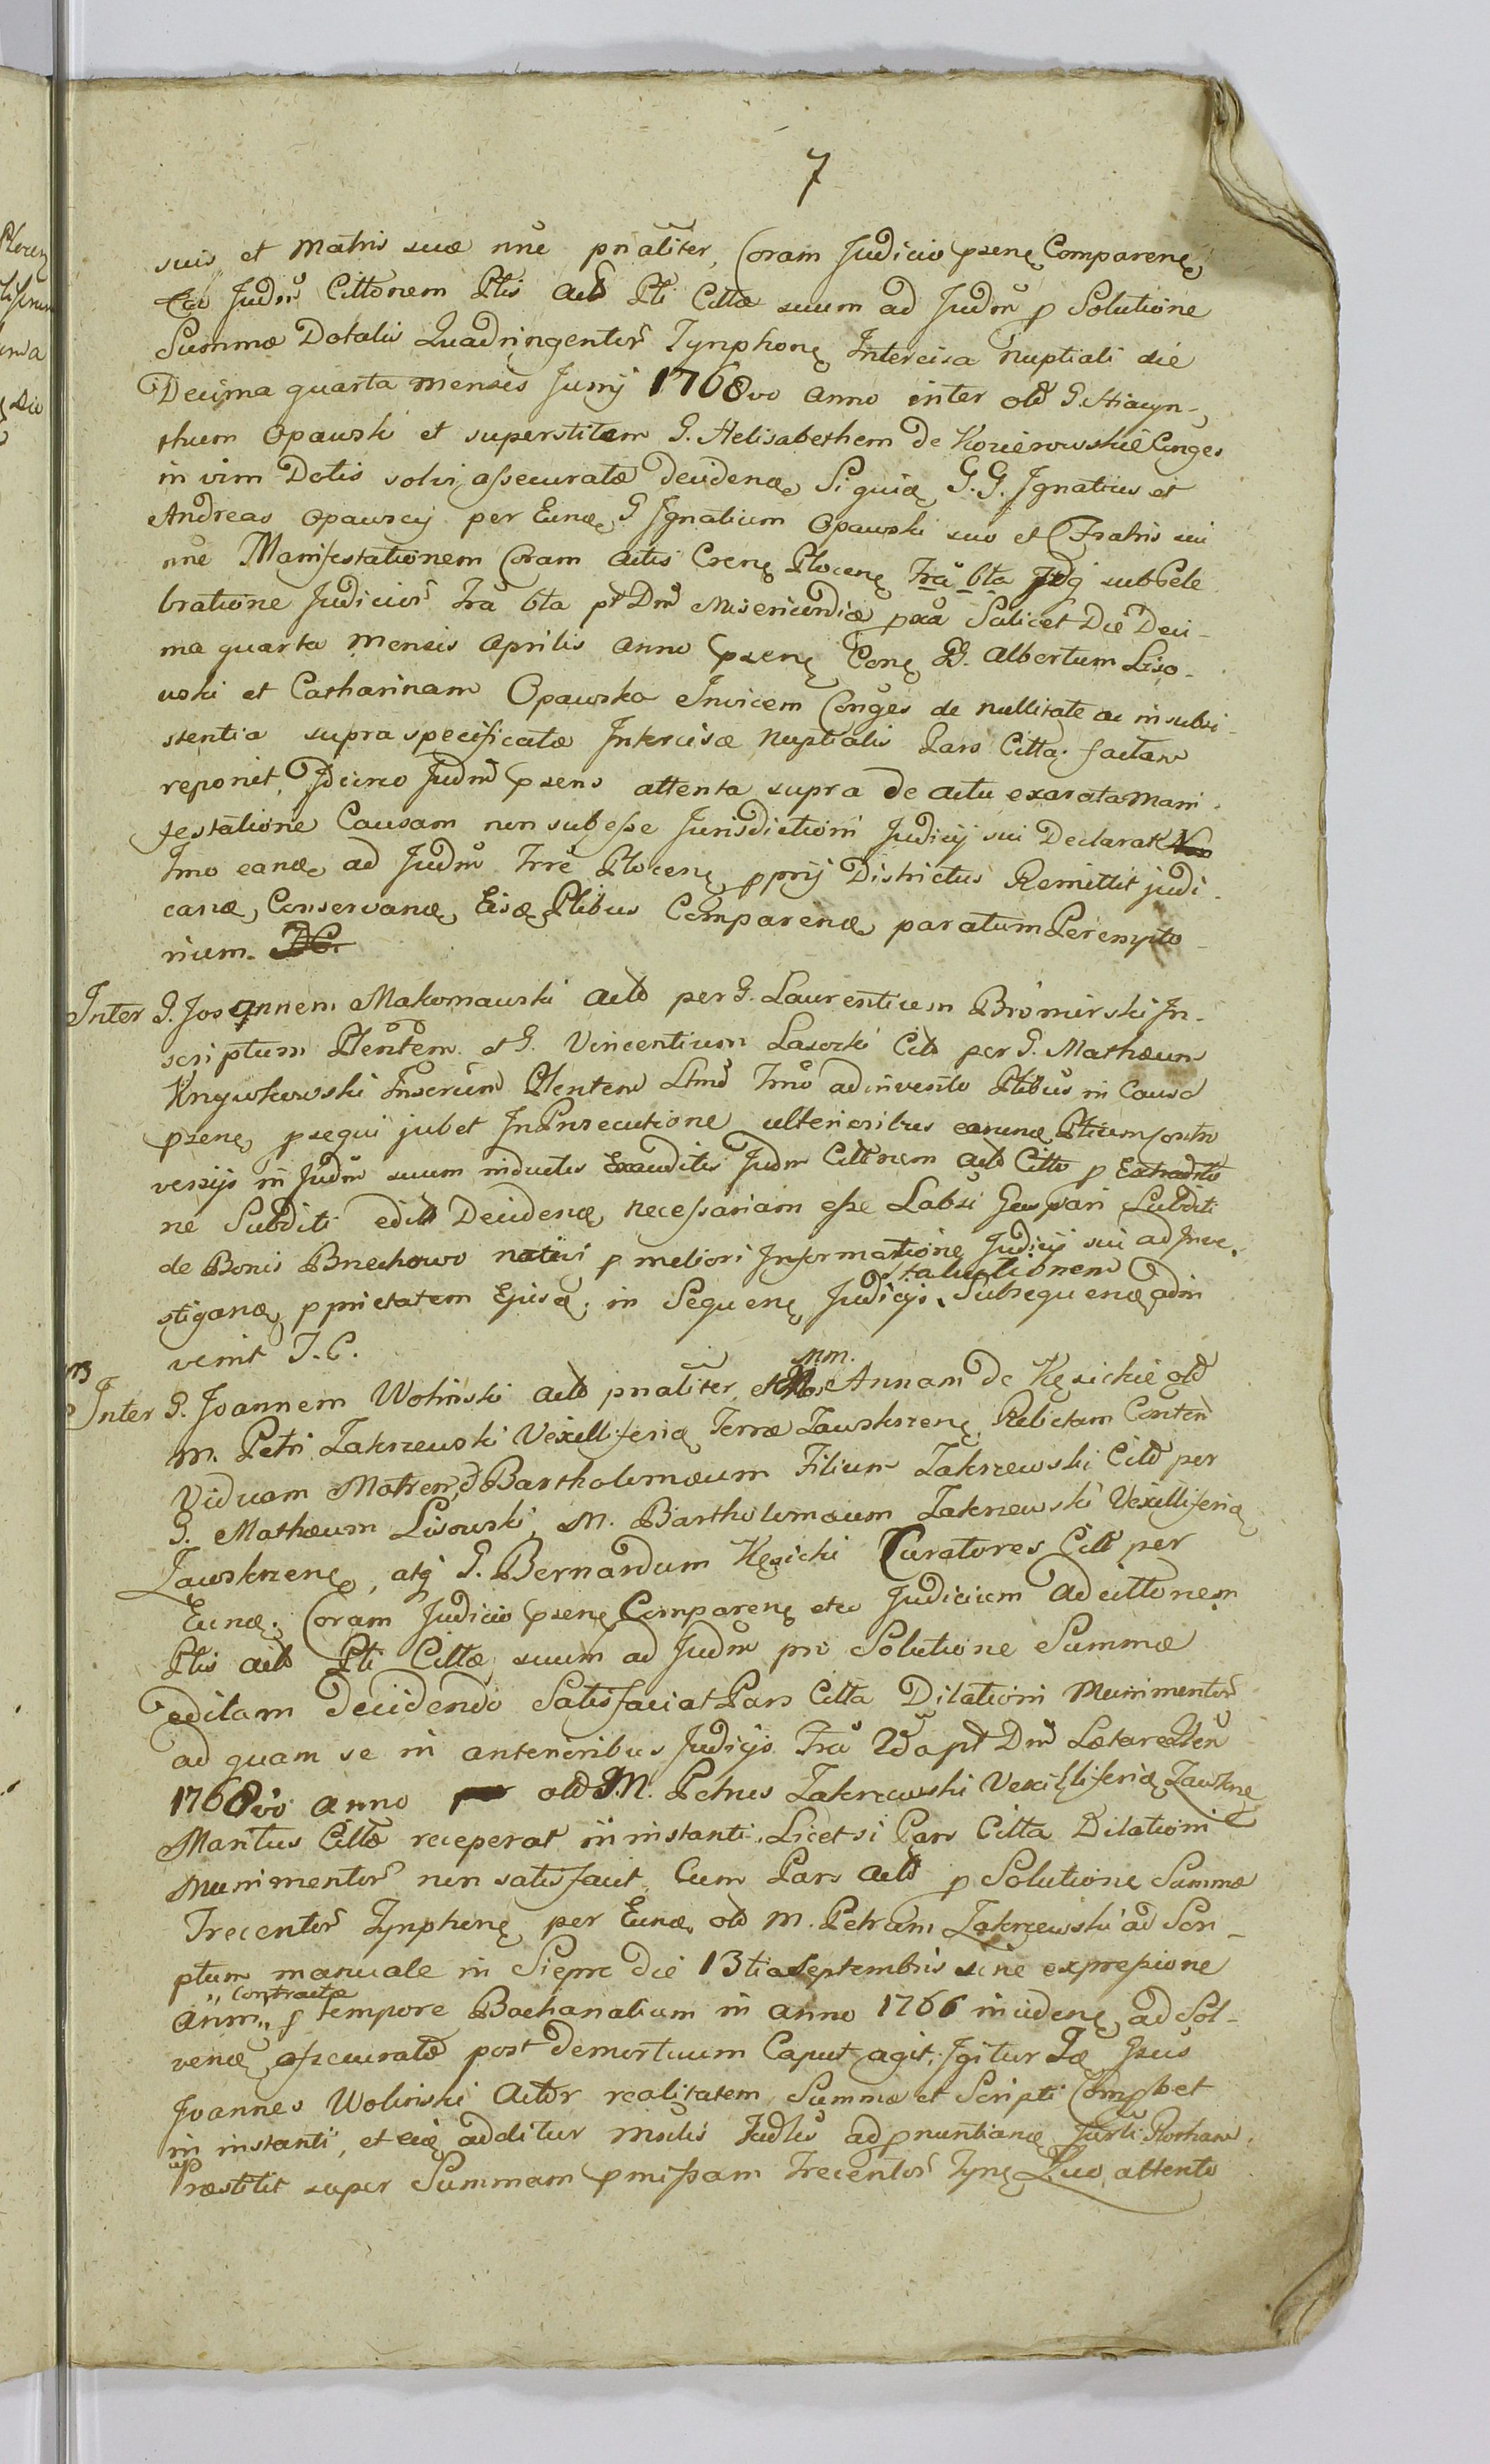 7
suis et Matris suæ nne pnaliter, Coram Judicio psene Comparene,
Judm Cittonem Ptis Acto Pti Citta suum ad Judm p Solutione
Summæ Dotalis Quadringentor Tynphone Intercisa Nuptiali die
Decima quarta Mensis Junij 1768vo Anno inter old G. Hiacyn-
thum Opawski et superstitem G. Helisabethem de Kozierowskie Conges
in vim Dotis solvi assecurata Decidenæ, Siquiæ G. G. Ignatius et
Andreas Opawscy per Eunæ G Ignatium Opawski suo et Fratris sui
nne Manifestationem Coram Actis Crene Plocene Fra 6ta sub Cele
bratione Judicior Fra 6ta pt Dm Misericordiæ pxa Scilicet Die Deci-
ma quarta Mensis Aprilis Anno psene Cone GG. Albertum Liso-
wski et Catharinam Opawska Invicem Conges de nullitate ac insubsi-
stentia supra specificatæ Intercisæ Nuptialis Pars Citta factam
reponit, Idcirco Judm psens attenta supra de actu exarata Mani-
festatione Causam non subesse Jurisdictioni Judicij sui Declarat
Imo eanæ ad Judm Trre Plocene pprij Districtus Remittit judi-
canæ, Conservanæ, Eisæ Ptibus Comparenæ, paratum Perempto-
rium.
Inter G. Joannem Makomaski Acto per G. Laurentium Bromirski In-
scriptum Plentem et G. Vincentium Lasocki Cito per G. Mathæum
Knyszkowski Inscrum Plentem Ltmo Trno adinvento Ptibus in Causa
psene, psequi jubet In Prosecutione ulterioribus earunæ Ptium contro
versijs in Judm suum inductis Exauditis Judm Cittonem Acto Citto p Extraditio
ne Subditi edit Decidenæ, necessariam esse Labsi Gaspari Subditi
de Bonis Bnechowo nativi p meliori Informatione Judicij sui ad Inve-
stiganæ pprietatem Ejusæ in Sequene Judicijs Subsequenæ adin
statutionem
venit T. C.
Inter G. Joannem Wolinski Acto pnaliter et Mm. Annam de Kęsickie old
M. Petri Zakrzewski Vexilliferiæ Terræ Zawskrzene, Relictam Conten
Viduam Matrem, & Bartholomæum Filium Zakrzewski Cito per
G. Mathæum Lisowski, M. Bartholomæum Zakrzewski Vexilliferiæ
Zawskrzene, atq G. Bernardum Kęsicki Curatores Cito per
Eunæ; Coram Judicio psene Comparene etco Judicium Adcittonem
Ptis Acto Pti Citta, suum ad Judm pro Solutione Summæ
editam Decidendo Satisfaciat Pars Citta Dilationi Munimentor
ad quam se in anterioribus Judicijs Fra 2da pt Dm Lætare
1768vo Anno old M. Petrus Zakrzewski Vexilliferiæ Zawkrze
Maritus Citta receperat in instanti. Licet si Pars Citta Dilationi
Munimentor non satisfacit, Cum Pars Acto p Solutione Summæ
Trecentor Tynphone per Eunæ old M. Petram Zakrzewski ad Scri-
ptum manuale in Sieprc die 13tia Septembris sine expressione
Anni, contractæ p tempore Bachanalium in anno 1766 incidene, ad Sol-
venæ, assecurata post demortuum Caput agit, Igitur Iæ Ipsus
Joannes Wolinski Actor realitatem Summæ et Scripti Compbet
in instanti, et eiæ additur Mnlis Judlis ad pnuntianæ Jurti Rotham.
Præstitit super Summam pmissam Trecentor Tyne, Quo attento